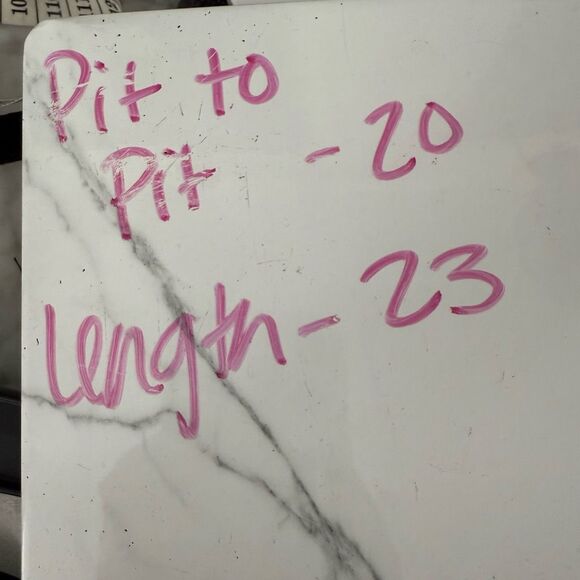 Pit to
Pit - 20
Length - 23